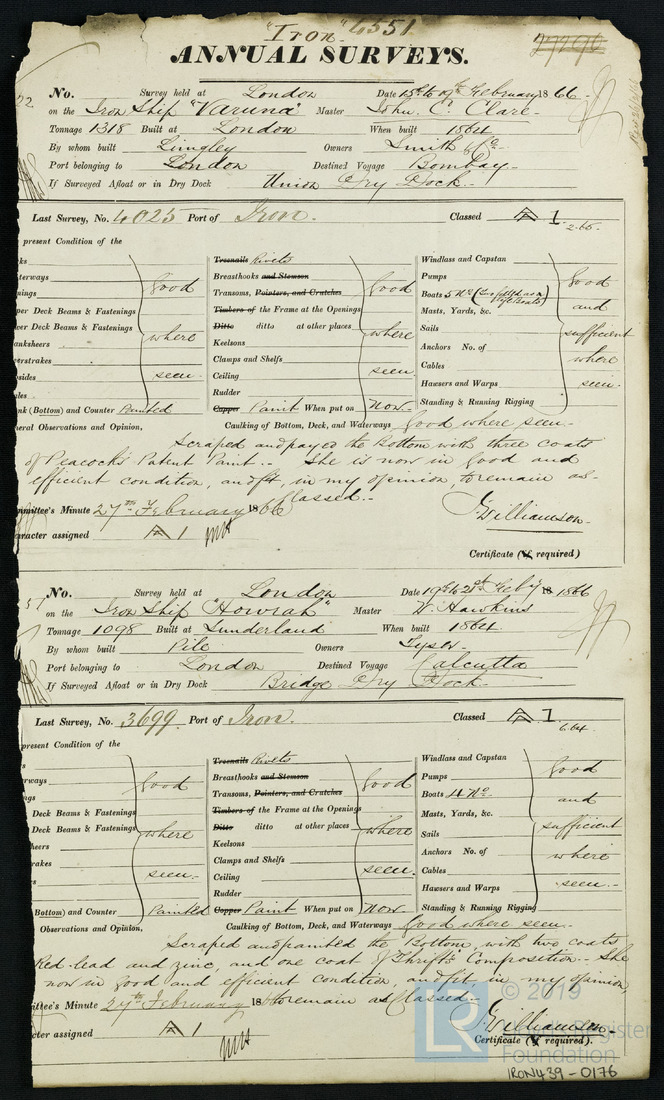 "Iron" 4551
ANNUAL SURVEYS.
No. Survey held at London Date 15th to 19th February 1866.
on the Iron Ship "Varuna" Master John C. Clare
Tonnage 1318 Built at London When built 1864
By whom built Lungley Owners Smith & Co
Port belonging to London Destined Voyage Bombay
If Surveyed Afloat or in Dry Dock Union Dry Dock.
Last Survey, No. 4025 Port of Iron. Classed A 1 2.65.
present Condition of the
good where seen.
per Deck Beams & Fastenings
wer Deck Beams & Fastenings
anksheers
erstrakes
nk (Bottom) and Counter Painted
Treenails Rivets
Breasthooks and Stemson
Transoms, Pointers, and Crutches
Timbers of the Frame at the Openings
Ditto ditto at other places
Keelsons
Clamps and Shelfs
Ceiling
Rudder
good where seen
Copper Paint When put on Now
Windlass and Capstan
Pumps
Boats 5 No
Masts, Yards, &c.
Sails
Anchors No. of
Cables
Hawsers and Warps
Standing & Running Rigging
good and sufficient where seen.
eral Observations and Opinion, Caulking of Bottom, Deck, and Waterways good where seen.
Scraped and payed the Bottom with three coats
of Peacock's Patent Paint. She is now in good and
efficient condition, and fit, in my opinion, to remain as
Classed.
mmittee's Minute 27th February 1866
J. Williamson.
aracter assigned A 1
Certificate (if required)
No. Survey held at London Date 19th to 21st Feby 1866
on the Iron Ship "Howrah" Master W. Hawkins
Tonnage 1098 Built at Sunderland When built 1864
By whom built Pile Owners Tyser
Port belonging to London Destined Voyage Calcutta
If Surveyed Afloat or in Dry Dock Bridge Dry Dock.
Last Survey, No. 3699 Port of Iron. Classed A 1 6.64.
present Condition of the
good where seen.
Deck Beams & Fastenings
Deck Beams & Fastenings
heers
rakes
Bottom) and Counter Painted
Treenails Rivets
Breasthooks and Stemson
Transoms, Pointers, and Crutches
Timbers of the Frame at the Openings
Ditto ditto at other places
Keelsons
Clamps and Shelfs
Ceiling
Rudder
good where seen.
Copper Paint When put on Now
Windlass and Capstan
Pumps
Boats 4 No
Masts, Yards, &c.
Sails
Anchors No. of
Cables
Hawsers and Warps
Standing & Running Rigging
good and sufficient where seen.
Observations and Opinion, Caulking of Bottom, Deck, and Waterways good where seen.
Scraped and painted the Bottom, with two coats
Red-lead and zinc, and one coat of Thrift's Composition. She
now in good and efficient condition, and fit, in my opinion,
to remain as Classed.
ittee's Minute 27th February 186
J. Williamson.
cter assigned A 1
Certificate (if required).
© 2019
LR Lloyd's Register
Foundation
IRON439-0176